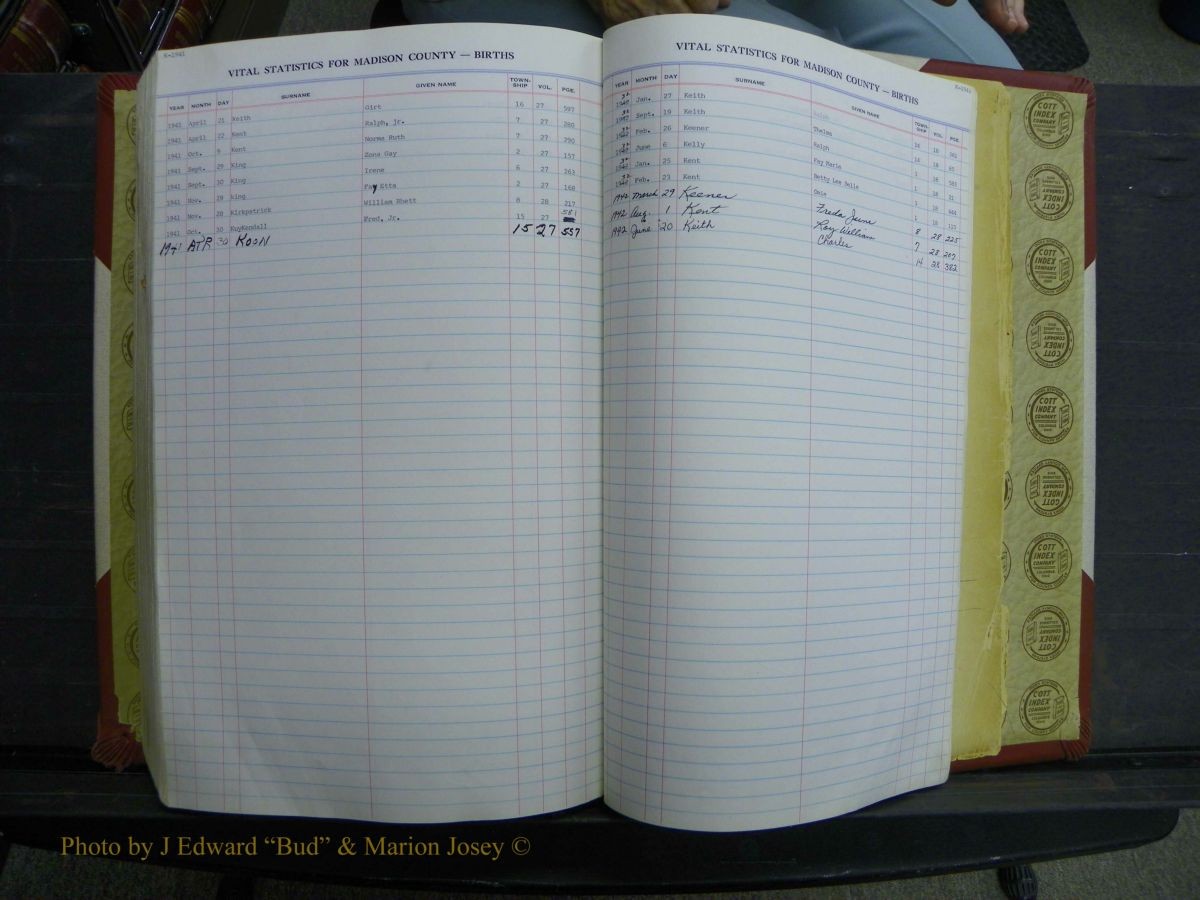 K-1941
VITAL STATISTICS FOR MADISON COUNTY — BIRTHS
YEAR MONTH DAY SURNAME GIVEN NAME TOWN-SHIP VOL. PGE.
1941 April 21 Keith Girt 16 27 597
1941 April 22 Kent Ralph, Jr. 7 27 280
1941 Oct. 9 Kent Norma Ruth 7 27 290
1941 Sept. 29 King Zona Gay 2 27 157
1941 Sept. 30 King Irene 6 27 263
1941 Nov. 28 King Fay Etta 2 27 168
1941 Nov. 28 Kirkpatrick William Rhett 8 28 217
1941 Oct. 30 KuyKendall Fred, Jr. 15 27 581
1941 APR 30 KOON 15 27 557
VITAL STATISTICS FOR MADISON COUNTY — BIRTHS
YEAR MONTH DAY SURNAME GIVEN NAME TOWN-SHIP VOL. PGE.
Jan. 27 Keith
Sept. 19 Keith Thelma
Feb. 26 Keener Ralph
June 6 Kelly Fay Marie
Jan. 25 Kent Betty Lee Belle
Feb. 23 Kent
1942 March 29 Keener Freda June 8 28 225
1942 Aug. 1 Kent Roy William 7 28 207
1942 June 20 Keith Charles 14 28 382
COTT INDEX COMPANY
COLUMBUS OHIO
Photo by J Edward “Bud” & Marion Josey ©